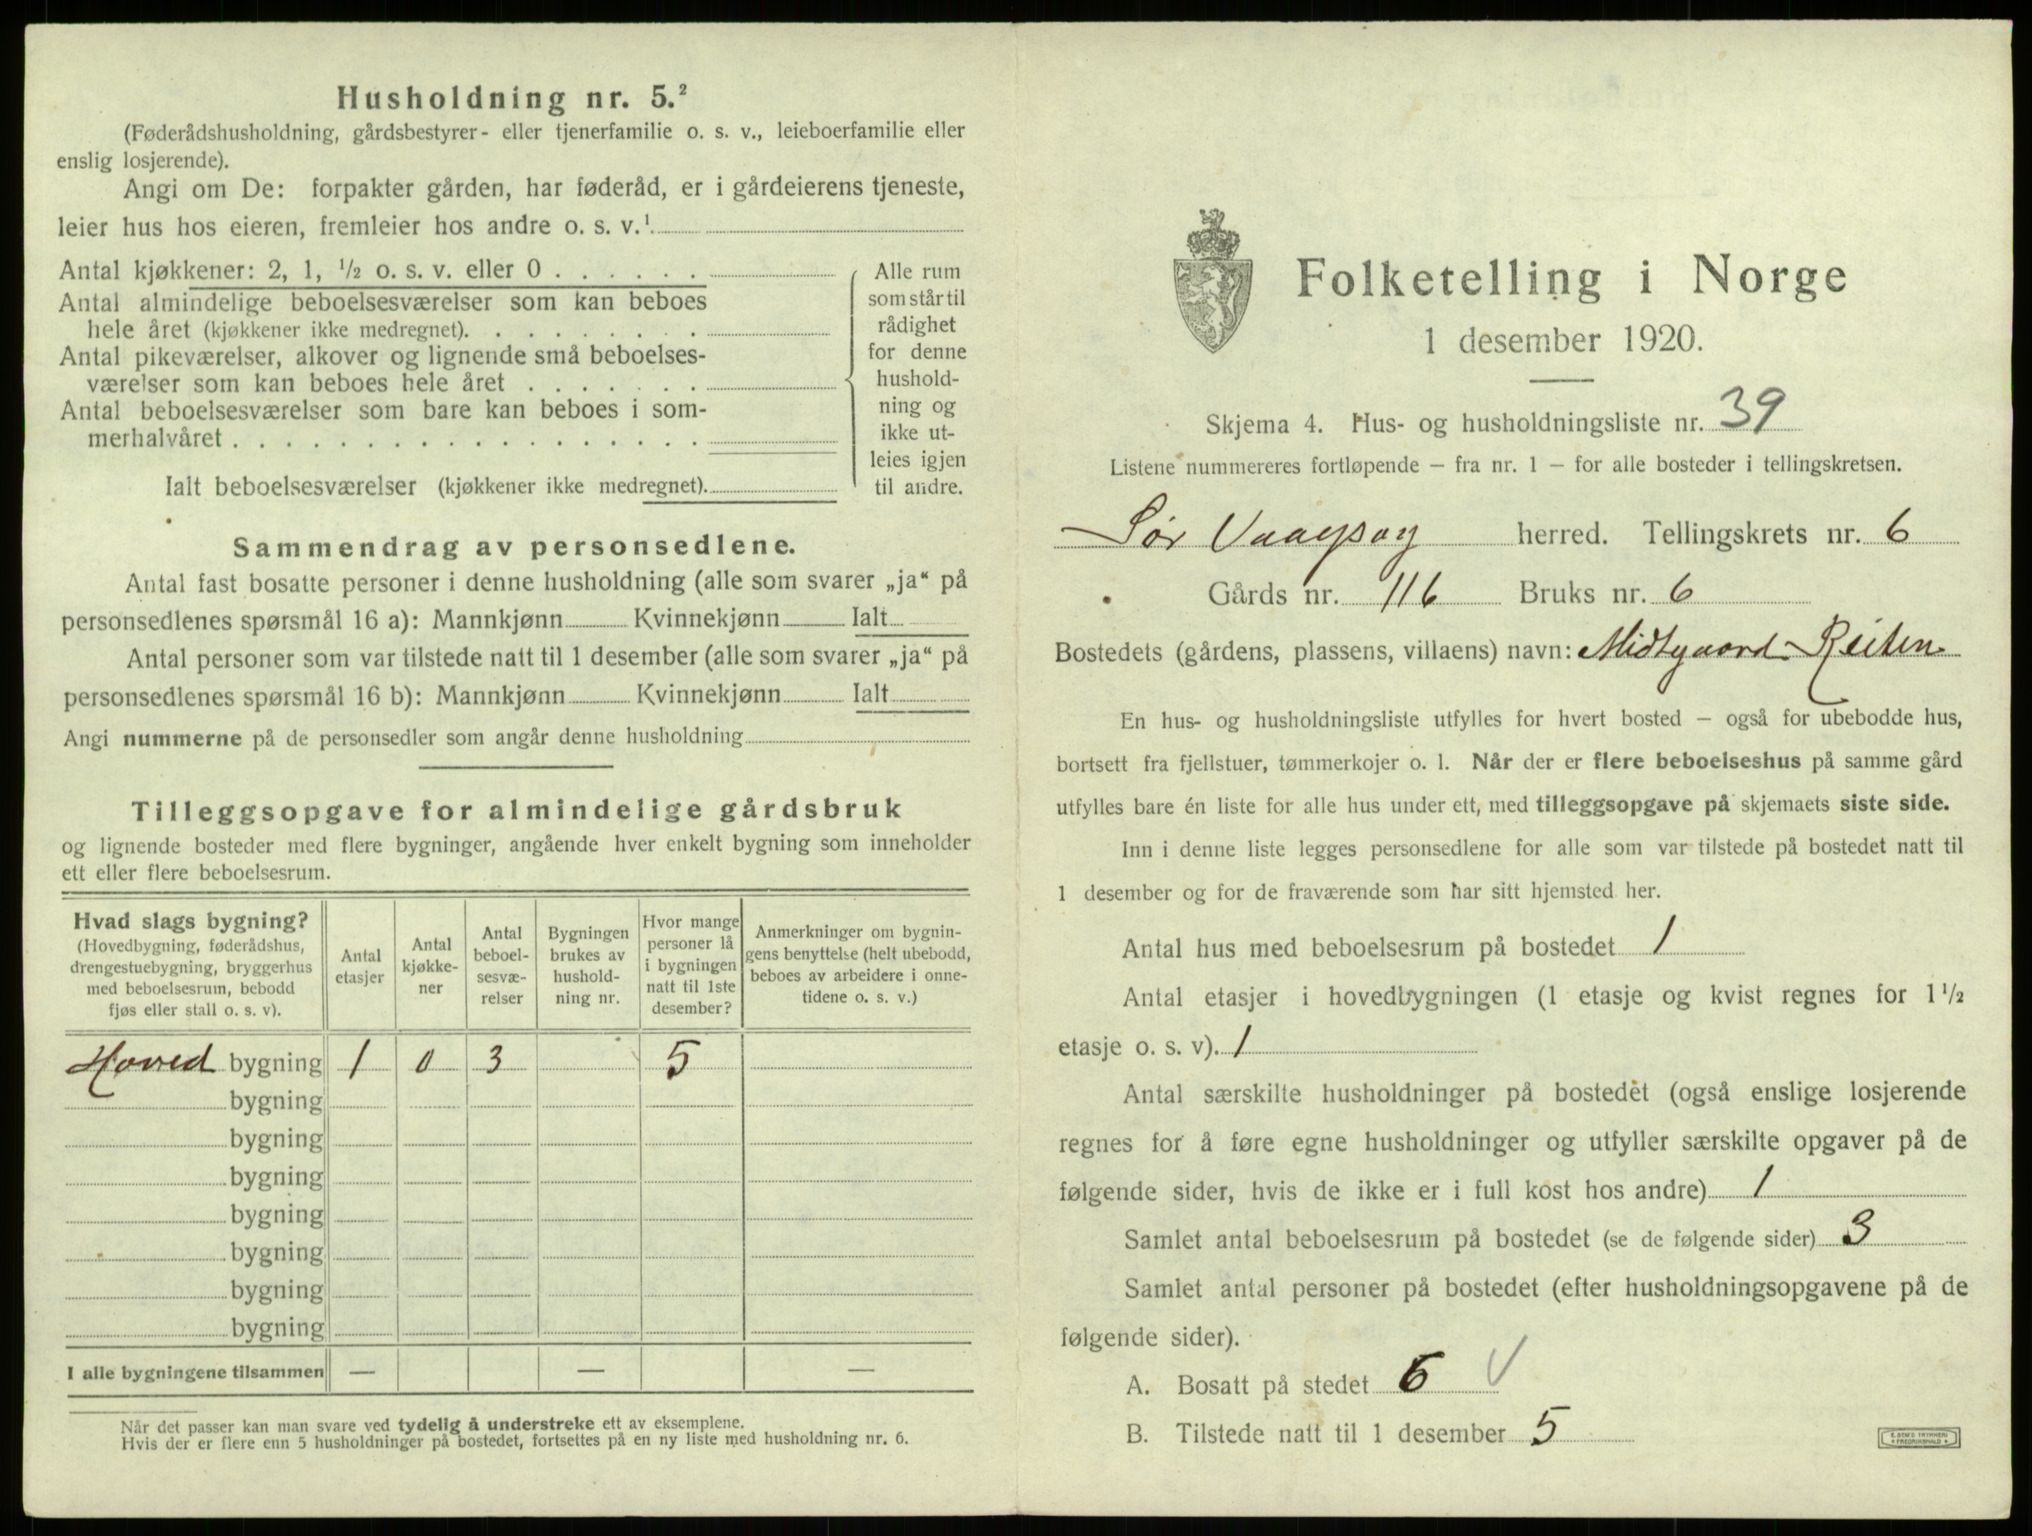 Husholdning nr. 5.²
(Føderådshusholdning, gårdsbestyrer- eller tjenerfamilie o. s. v., leieboerfamilie eller
enslig losjerende).
Angi om De: forpakter gården, har føderåd, er i gårdeierens tjeneste,
leier hus hos eieren, fremleier hos andre o. s. v.¹
Antal kjøkkener: 2, 1, ½ o. s. v. eller 0
Antal almindelige beboelsesværelser som kan beboes
hele året (kjøkkener ikke medregnet).
Antal pikeværelser, alkover og lignende små beboelses-
værelser som kan beboes hele året
Antal beboelsesværelser som bare kan beboes i som-
merhalvåret
Ialt beboelsesværelser (kjøkkener ikke medregnet).
Alle rum
som står til
rådighet
for denne
hushold-
ning og
ikke ut-
leies igjen
til andre.
Sammendrag av personsedlene.
Antal fast bosatte personer i denne husholdning (alle som svarer „ja“ på
personsedlenes spørsmål 16 a): Mannkjønn Kvinnekjønn Ialt
Antal personer som var tilstede natt til 1 desember (alle som svarer „ja“ på
personsedlenes spørsmål 16 b): Mannkjønn Kvinnekjønn Ialt
Angi nummerne på de personsedler som angår denne husholdning
Tilleggsopgave for almindelige gårdsbruk
og lignende bosteder med flere bygninger, angående hver enkelt bygning som inneholder
ett eller flere beboelsesrum.
Hvad slags bygning?
(Hovedbygning, føderådshus,
drengestuebygning, bryggerhus
med beboelsesrum, bebodd
fjøs eller stall o. s. v).
Antal
etasjer
Antal
kjøkke-
ner
Antal
beboel-
sesvæ-
relser
Bygningen
brukes av
hushold-
ning nr.
Hvor mange
personer lå
i bygningen
natt til 1ste
desember?
Anmerkninger om bygnin-
gens benyttelse (helt ubebodd,
beboes av arbeidere i onne-
tidene o. s. v.)
Hoved bygning 1 0 3 5
bygning
bygning
bygning
bygning
bygning
bygning
bygning
I alle bygningene tilsammen — — —
Når det passer kan man svare ved tydelig å understreke ett av eksemplene.
Hvis der er flere enn 5 husholdninger på bostedet, fortsettes på en ny liste med husholdning nr. 6.
Folketelling i Norge
1 desember 1920.
Skjema 4. Hus- og husholdningsliste nr. 39
Listene nummereres fortløpende – fra nr. 1 – for alle bosteder i tellingskretsen.
Sør Vaagsøy herred. Tellingskrets nr. 6
Gårds nr. 116 Bruks nr. 6
Bostedets (gårdens, plassens, villaens) navn: Midtgaard Reiten
En hus- og husholdningsliste utfylles for hvert bosted – også for ubebodde hus,
bortsett fra fjellstuer, tømmerkojer o. l. Når der er flere beboelseshus på samme gård
utfylles bare én liste for alle hus under ett, med tilleggsopgave på skjemaets siste side.
Inn i denne liste legges personsedlene for alle som var tilstede på bostedet natt til
1 desember og for de fraværende som har sitt hjemsted her.
Antal hus med beboelsesrum på bostedet 1
Antal etasjer i hovedbygningen (1 etasje og kvist regnes for 1½
etasje o. s. v). 1
Antal særskilte husholdninger på bostedet (også enslige losjerende
regnes for å føre egne husholdninger og utfyller særskilte opgaver på de
følgende sider, hvis de ikke er i full kost hos andre) 1
Samlet antal beboelsesrum på bostedet (se de følgende sider) 3
Samlet antal personer på bostedet (efter husholdningsopgavene på de
følgende sider).
A. Bosatt på stedet 6 V
B. Tilstede natt til 1 desember 5
E. SEM'S TRYKKERI
FREDRIKSHALD